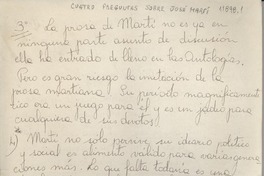 CUATRO PREGUNTAS SOBRE JOSÉ MARTÍ
3º La prosa de Martí no es ya en
ninguna parte asunto de discusión
ella ha entrado de lleno en las Antologías.
Pero es gran riesgo la imitación de la
prosa martiana. Su período magnificamente
tico era un juego para él y es un jadio para
cualquiera de sus devotos.
4) Martí no sólo pervive, su ideario político
y social es alimento válido para varias genera
ciones más. Lo que falta todavía es una